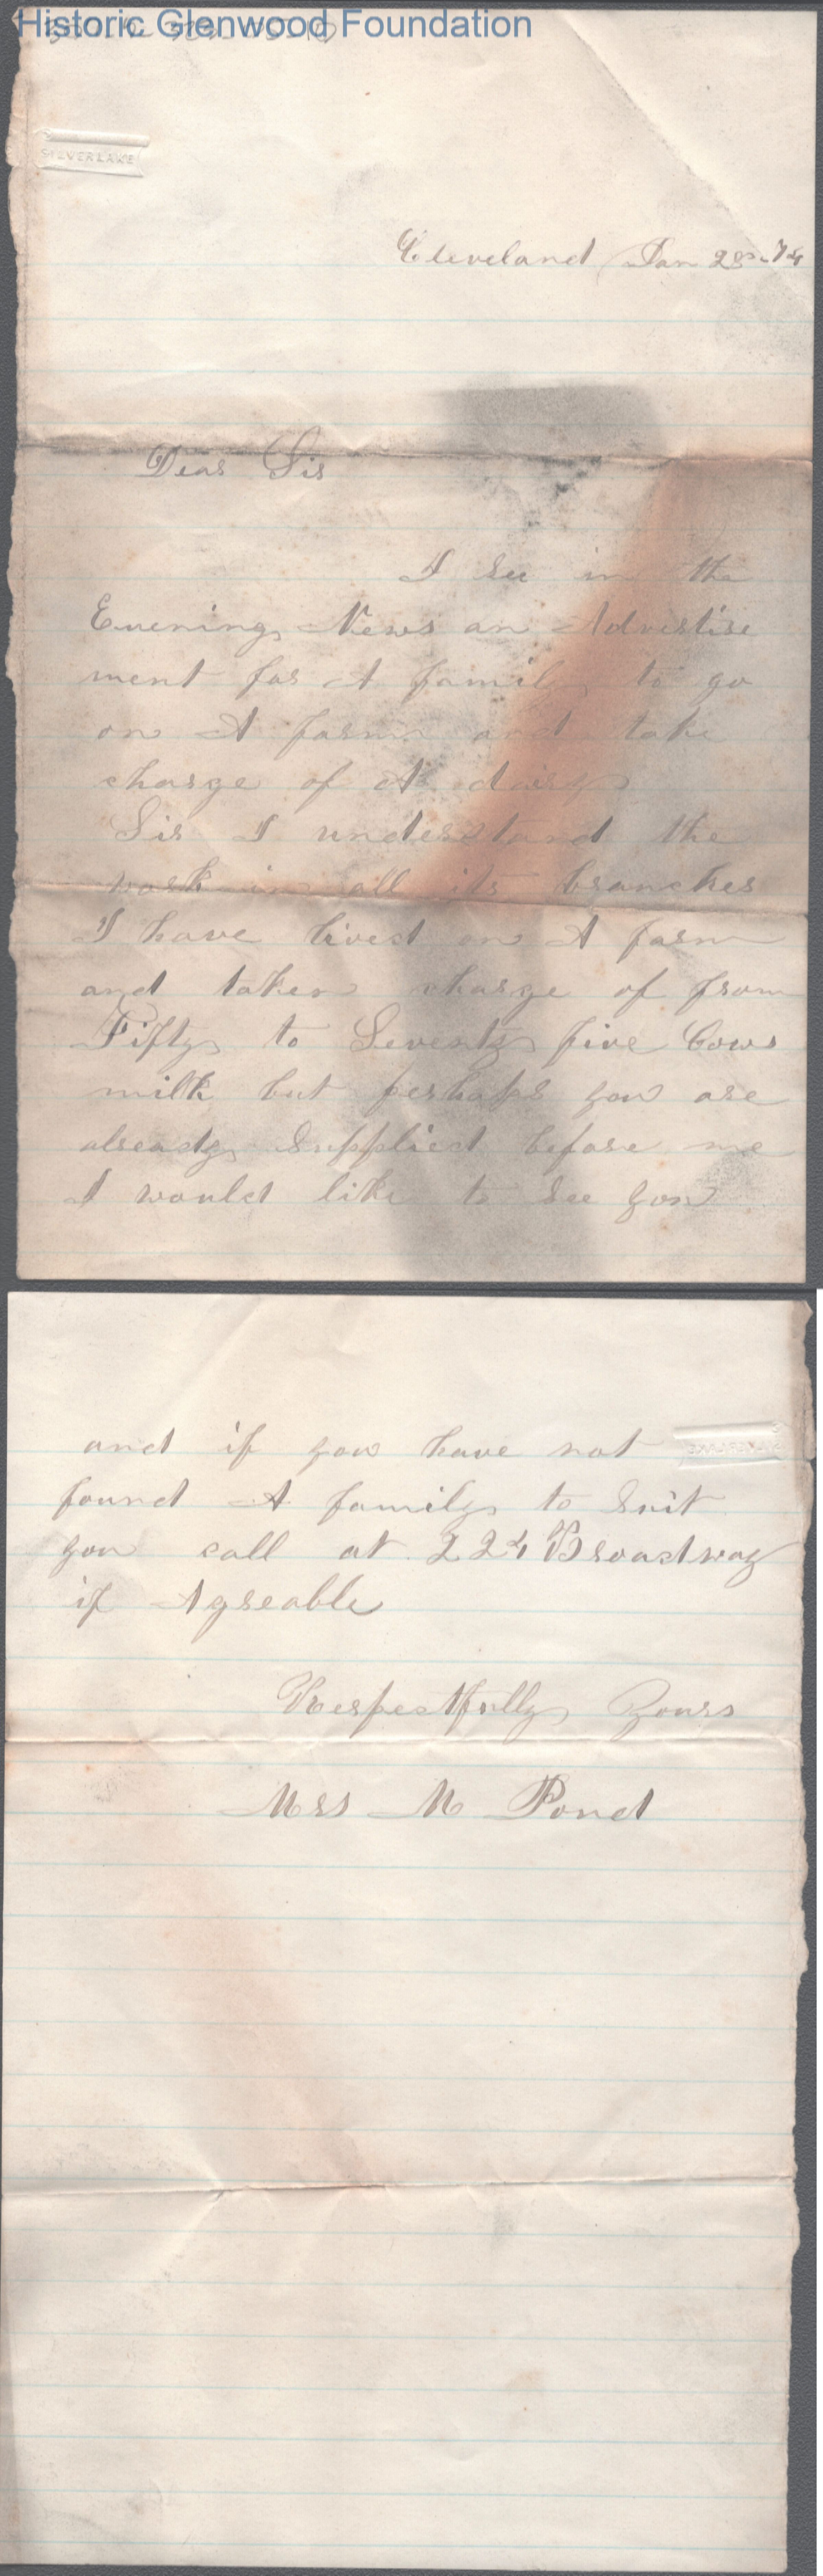 Historic Glenwood Foundation
SILVERLAKE
Cleveland Jan 2nd 74
Dear Sir
I see in the
Evening News an Advertise
ment for A family to go
on A farm and take
charge of A dairy
Sir I understand the
work in all its branches
I have lived on A farm
and taken charge of from
Fifty to Seventy five Cows
milk but perhaps you are
already Supplied before me
I would like to See you
and if you have not
found A family to Suit
you call at 224 Broadway
if Agreable
Respectfully Yours
Mrs M Pond